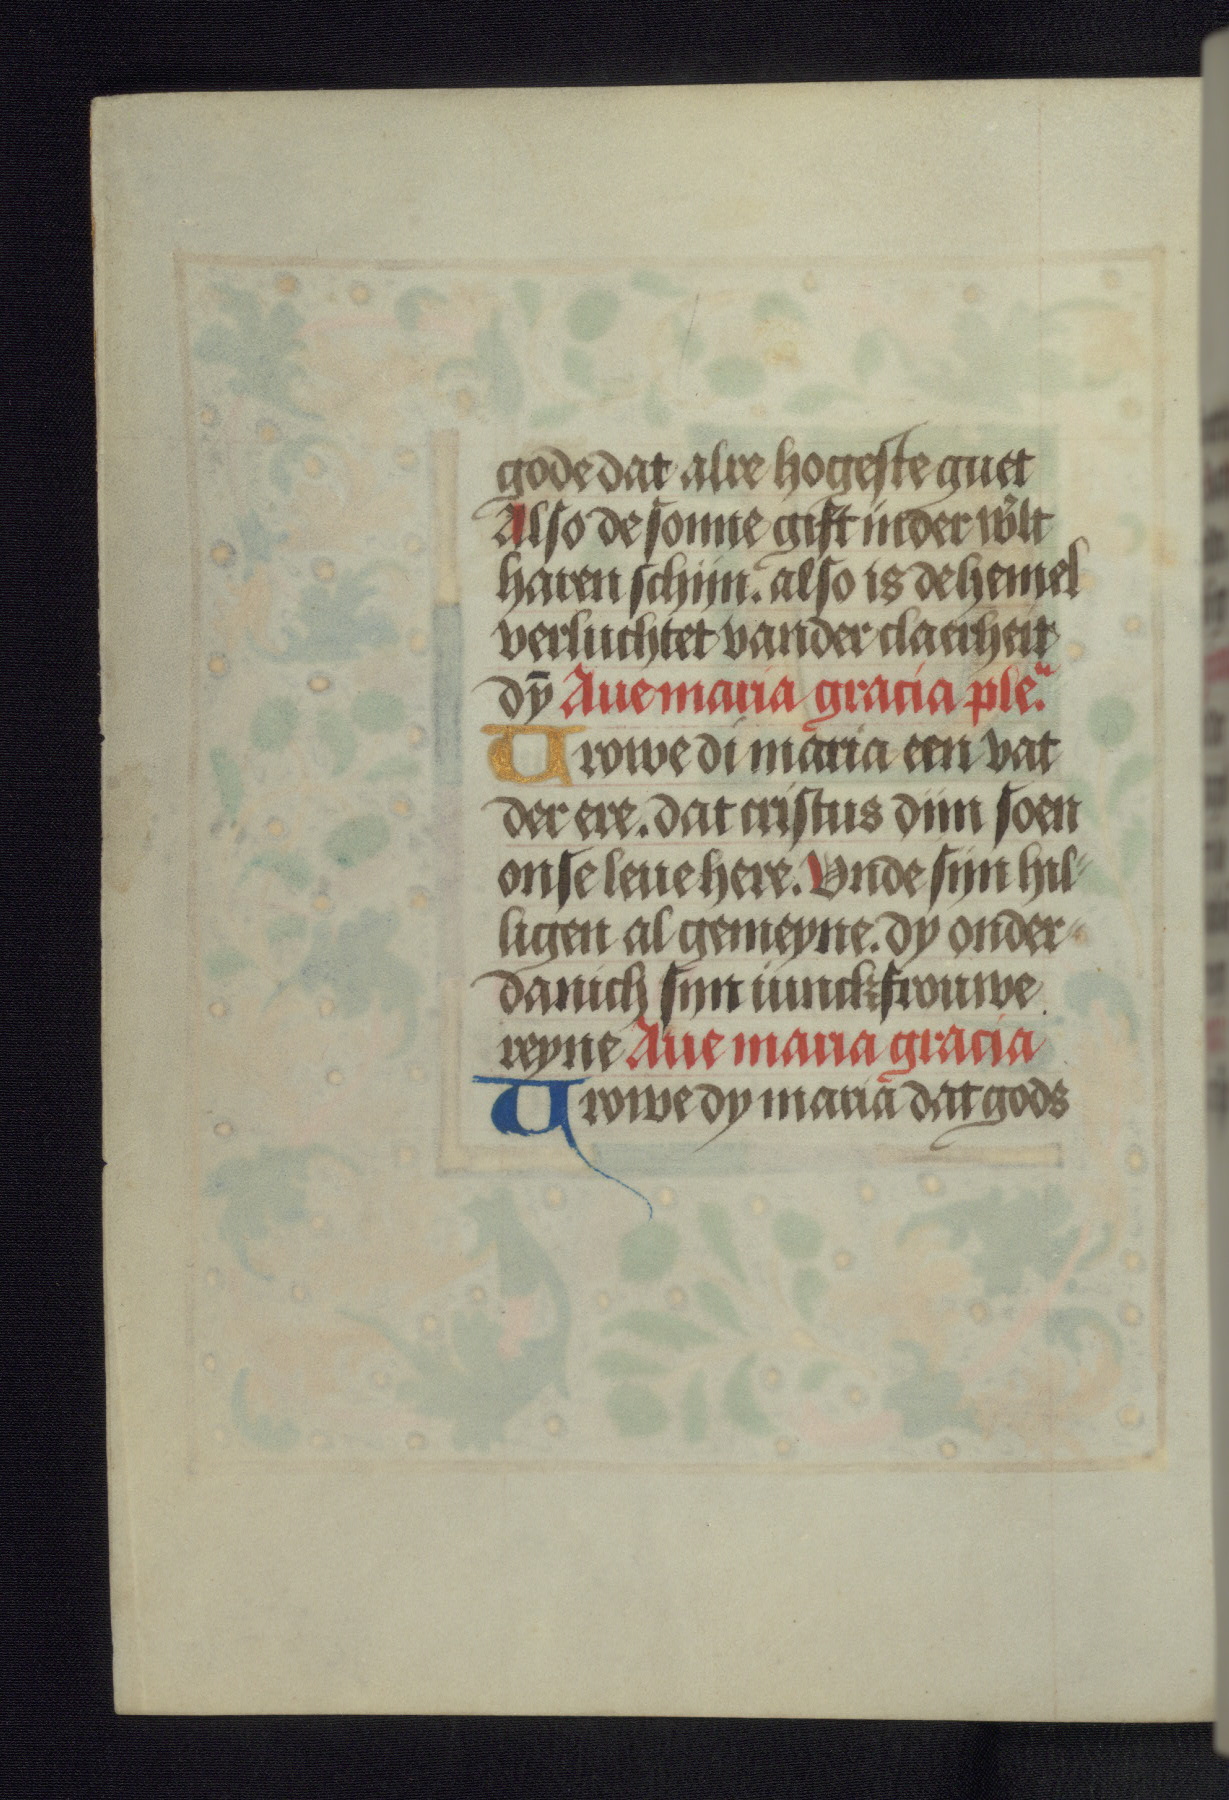 gode dat alre hogeste guet
Also de sonne gift inder w̄lt
haren schijn. also is de hemel
verluchtet vander claerheit
dȳ Aue maria gracia ple.ͣ
Vrowe di maria een vat
der ere. dat cristus dijn soen
onse leue here. Vnde sijn hil-
ligen al gemeyne. dy onder-
danich sijn iunckfrouwe
reyne Aue maria gracia
Vrowe dy maria dat gods